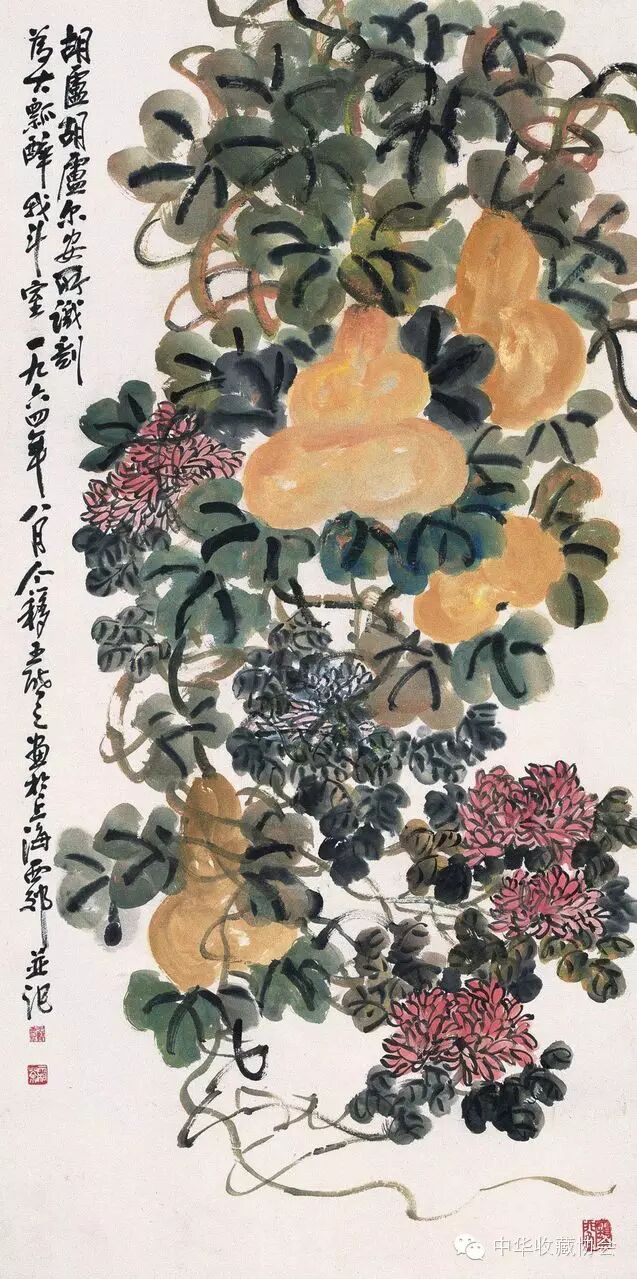 胡盧胡盧尔安所識刳
為大瓢醉我斗室一九六四年八月个簃王啟之画於上海西郊並記
中华收藏协会